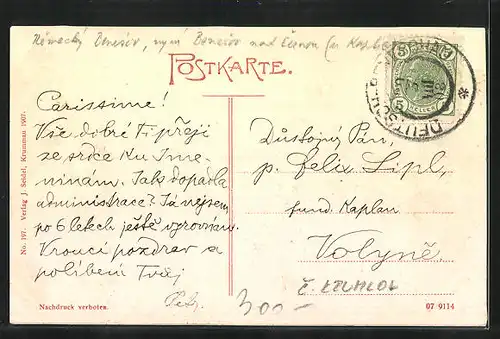 Německý Benešov, nyní Benešov nad Černou (u Kaplice
POSTKARTE.
5 HELLER 5
DEUTSCH-BENESCHAU
Carissime!
Vše dobré Ti přeji
ze srdce ku Jme
ninám. Jak dopadla
administrace? Já nejsem
po 6 letech ještě vyrovnán.
Vroucí pozdrav a
políbení Tvůj
Petr.
Důstojný Pán,
p. Felix Lipl,
fund. Kaplan
Volyně.
Č. KRUMLOV
300-
No. 197. Verlag J. Seidel, Krummau 1907.
Nachdruck verboten.
07 9114